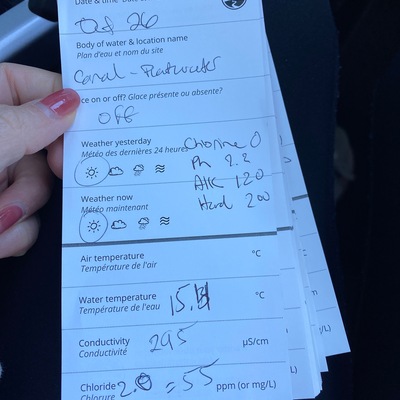 Date & time Date
Oct 26
Body of water & location name
Plan d'eau et nom du site
Canal -
ce on or off? Glace présente ou absente?
off
Weather yesterday
Météo des dernières 24 heures
Chlorine 0
Ph 8.2
Alk 120
Hard 200
Weather now
Météo maintenant
Air temperature °C
Température de l'air
Water temperature 15. °C
Température de l'eau
Conductivity 295 µS/cm
Conductivité
Chloride 2.0 = 55 ppm (or mg/L)
Chlorure
g/L)
/L)